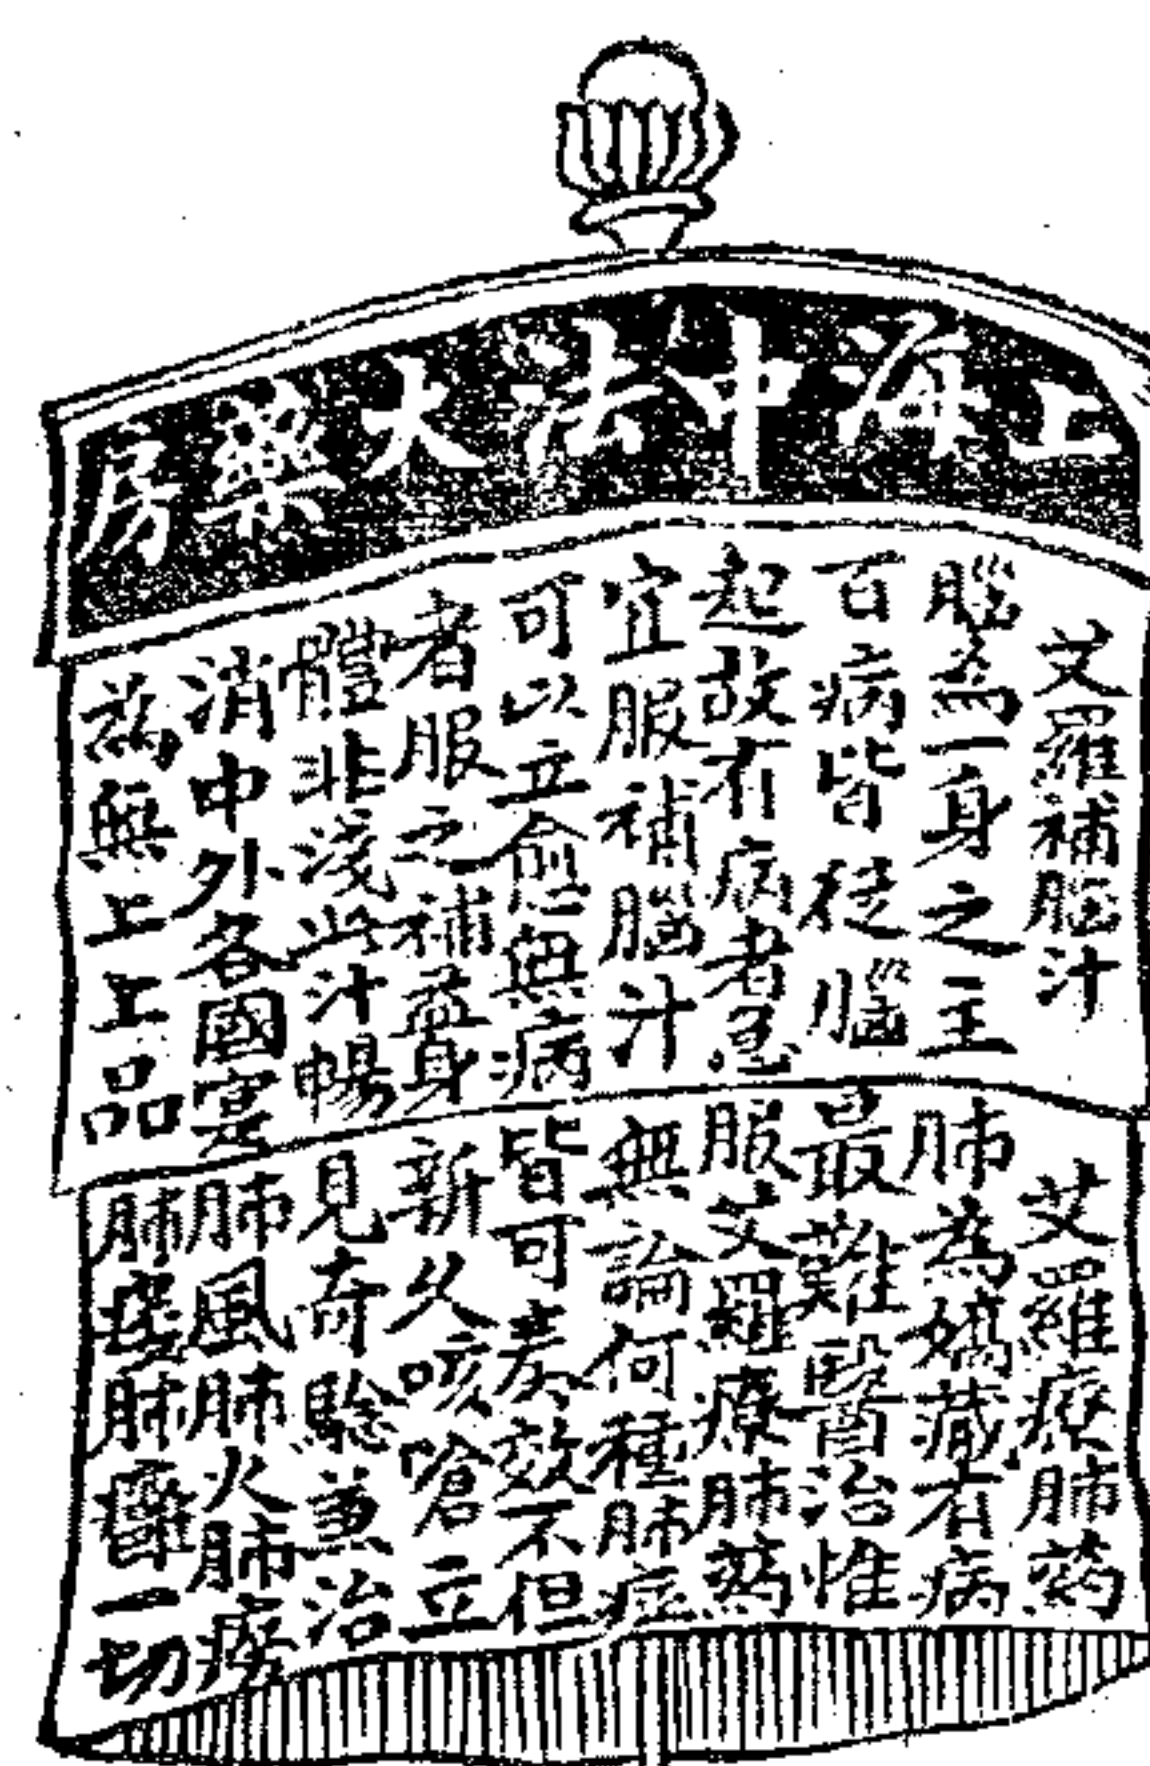 上海中法大藥房
艾羅補腦汁
腦為一身之主
百病皆從腦
起故有病者急
宜服補腦汁
可以立愈無病
者服之補益身
體非淺此汁暢
消中外各國實
為無上上品
艾羅療肺药
肺為嬌藏有病
最難醫治惟
服艾羅療肺药
無論何種肺症
皆可奏效不但
新久咳嗆立
見奇騐兼治
肺風肺火肺痿
肺癰肺一切